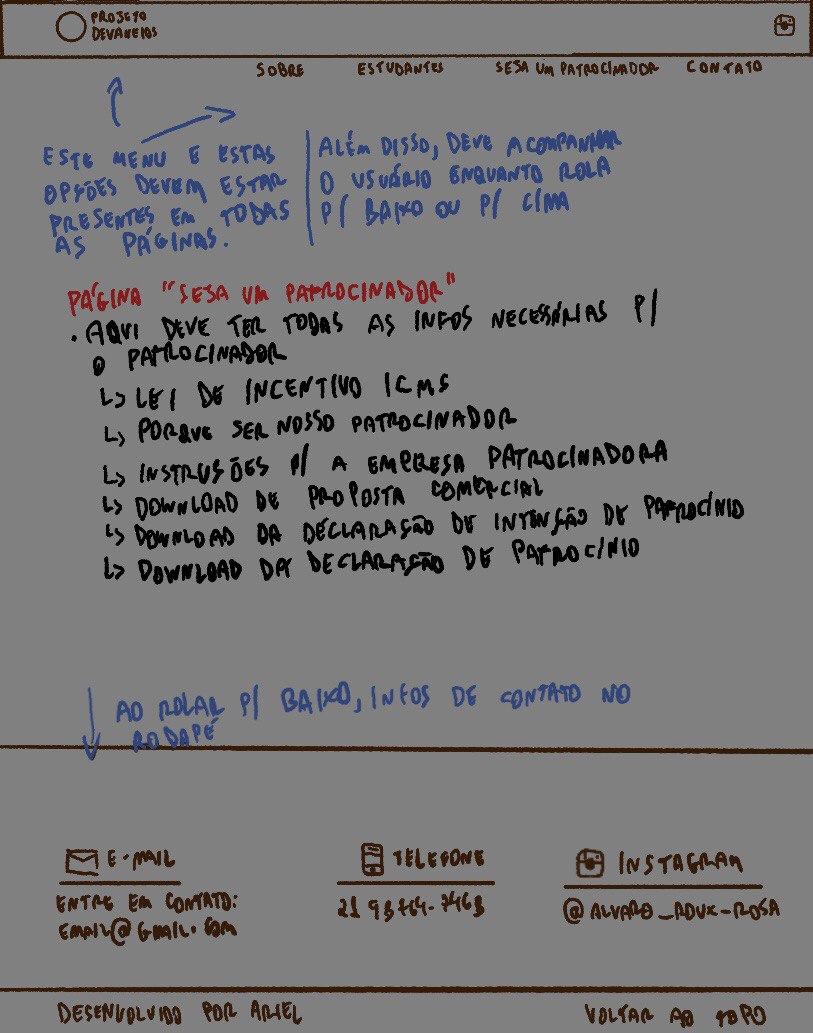 PROJETO
DEVANEIOS
SOBRE ESTUDANTES SEJA UM PATROCINADOR CONTATO
ESTE MENU E ESTAS
OPÇÕES DEVEM ESTAR
PRESENTES EM TODAS
AS PÁGINAS.
ALÉM DISSO, DEVE ACOMPANHAR
O USUÁRIO ENQUANTO ROLA
P/ BAIXO OU P/ CÍMA
PÁGINA "SEJA UM PATROCINADOR"
• AQUI DEVE TER TODAS AS INFOS NECESSÁRIAS P/
O PATROCINADOR
↳ LEI DE INCENTIVO ICMS
↳ PORQUE SER NOSSO PATROCINADOR
↳ INSTRUSÕES P/ A EMPRESA PATROCINADORA
↳ DOWNLOAD DE PROPOSTA COMERCIAL
↳ DOWNLOAD DA DECLARAÇÃO DE INTENÇÃO DE PATROCÍNIO
↳ DOWNLOAD DA DECLARAÇÃO DE PATROCÍNIO
AO ROLAR P/ BAIXO, INFOS DE CONTATO NO
RODAPÉ
E-MAIL
ENTRE EM CONTATO:
EMAIL@GMAIL.COM
TELEFONE
21
INSTAGRAM
@ALVARO_ADUX-ROSA
DESENVOLVIDO POR ARIEL
VOLTAR AO TOPO